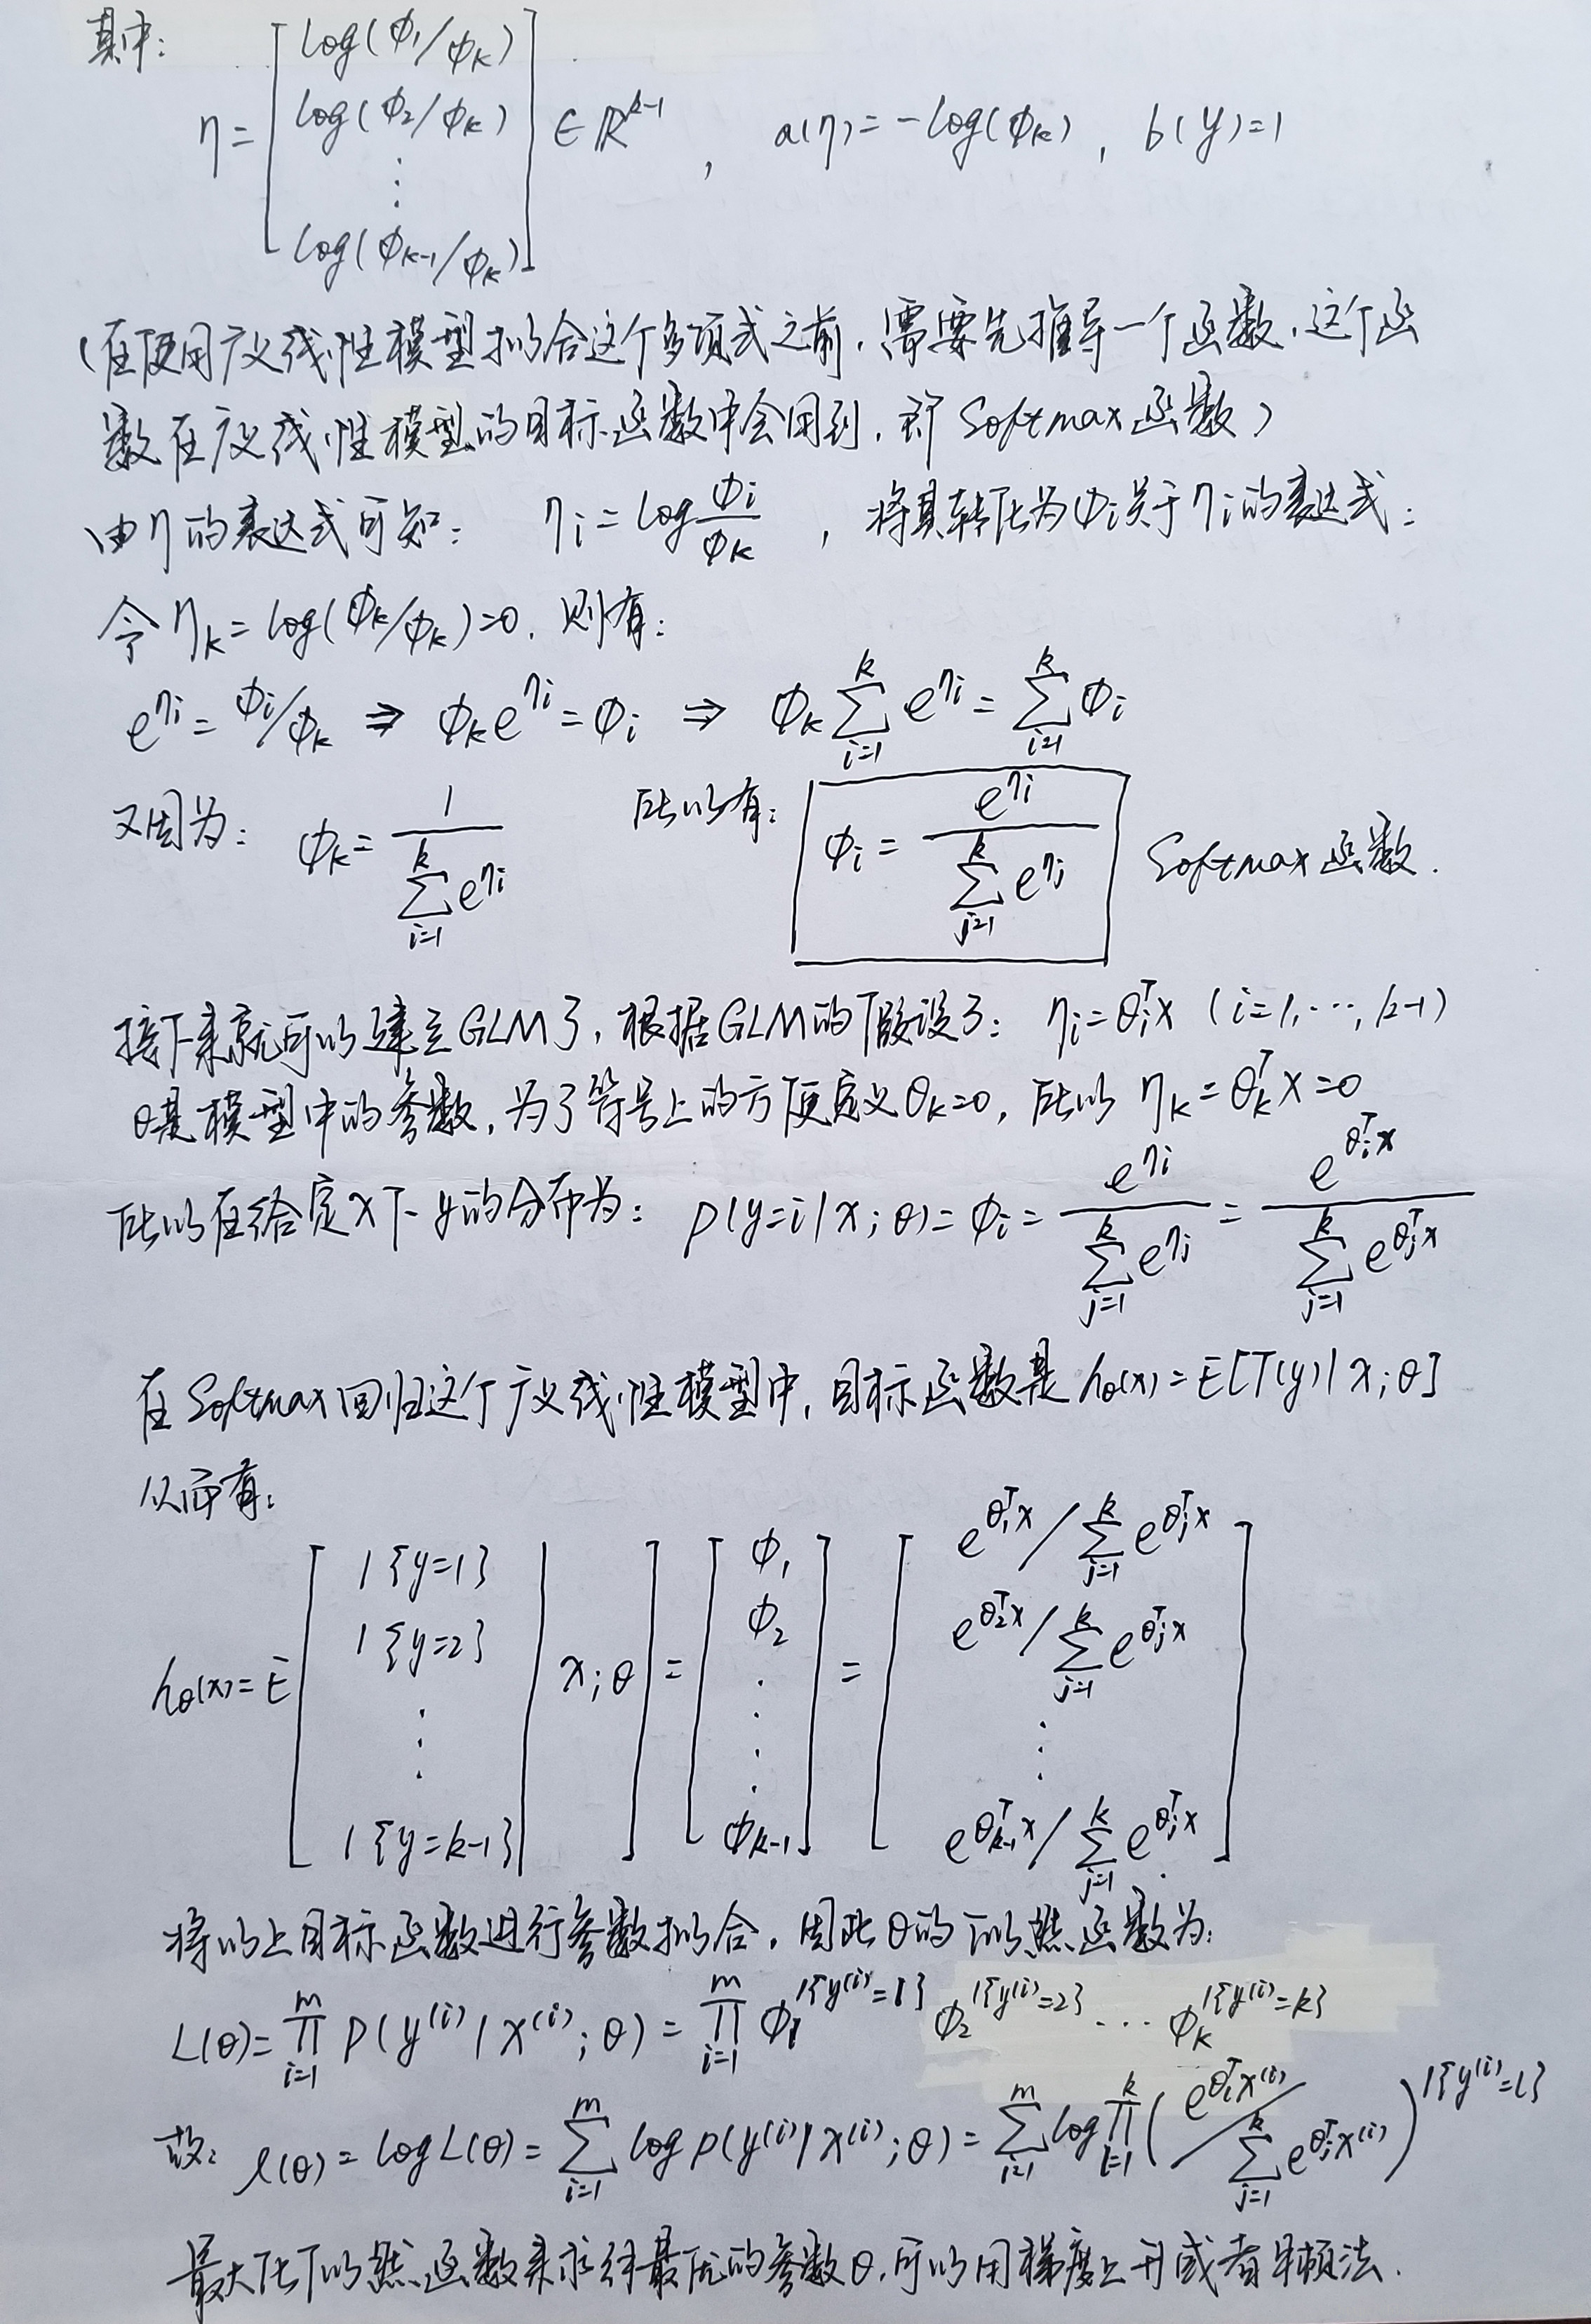 其中:
η = [ log(φ₁/φₖ) log(φ₂/φₖ) ⋮ log(φₖ₋₁/φₖ) ] ∈ ℝ^{k-1} , a(η) = -log(φₖ) , b(y)=1
(在使用广义线性模型拟合这个多项式之前,需要先推导一个函数,这个函
数在广义线性模型的目标函数中会用到,即 Softmax 函数)
由η的表达式可知: ηᵢ = log φᵢ/φₖ , 将其转化为φᵢ关于ηᵢ的表达式:
令 ηₖ = log(φₖ/φₖ)=0, 则有:
e^{ηᵢ} = φᵢ/φₖ ⇒ φₖe^{ηᵢ} = φᵢ ⇒ φₖ∑_{i=1}^{k} e^{ηᵢ} = ∑_{i=1}^{k} φᵢ
又因为: φₖ = 1 / ∑_{i=1}^{k} e^{ηᵢ} 所以有: φᵢ = e^{ηᵢ} / ∑_{j=1}^{k} e^{ηⱼ} Softmax 函数.
接下来就可以建立GLM了,根据GLM的假设3: ηᵢ = θᵢᵀx (i=1,⋯,k-1)
θ是模型中的参数,为了符号上的方便定义θₖ=0, 所以 ηₖ = θₖᵀx = 0
所以在给定x下y的分布为: p(y=i|x;θ) = φᵢ = e^{ηᵢ} / ∑_{j=1}^{k} e^{ηⱼ} = e^{θᵢᵀx} / ∑_{j=1}^{k} e^{θⱼᵀx}
在Softmax回归这个广义线性模型中,目标函数是 h_θ(x) = E[T(y)|x;θ]
从而有:
h_θ(x) = E[ 1{y=1} 1{y=2} ⋮ 1{y=k-1} | x;θ ] = [ φ₁ φ₂ ⋮ φₖ₋₁ ] = [ e^{θ₁ᵀx}/∑_{j=1}^{k} e^{θⱼᵀx} e^{θ₂ᵀx}/∑_{j=1}^{k} e^{θⱼᵀx} ⋮ e^{θₖ₋₁ᵀx}/∑_{j=1}^{k} e^{θⱼᵀx} ]
将以上目标函数进行参数拟合,因此θ的似然函数为:
L(θ) = ∏_{i=1}^{m} p(y^{(i)}|x^{(i)};θ) = ∏_{i=1}^{m} φ₁^{1{y^{(i)}=1}} φ₂^{1{y^{(i)}=2}} ⋯ φₖ^{1{y^{(i)}=k}}
故: ℓ(θ) = log L(θ) = ∑_{i=1}^{m} log p(y^{(i)}|x^{(i)};θ) = ∑_{i=1}^{m} log ∏_{l=1}^{k} ( e^{θₗᵀx^{(i)}} / ∑_{j=1}^{k} e^{θⱼᵀx^{(i)}} )^{1{y^{(i)}=l}}
最大化似然函数来求解最优的参数θ,可以用梯度上升或者牛顿法.